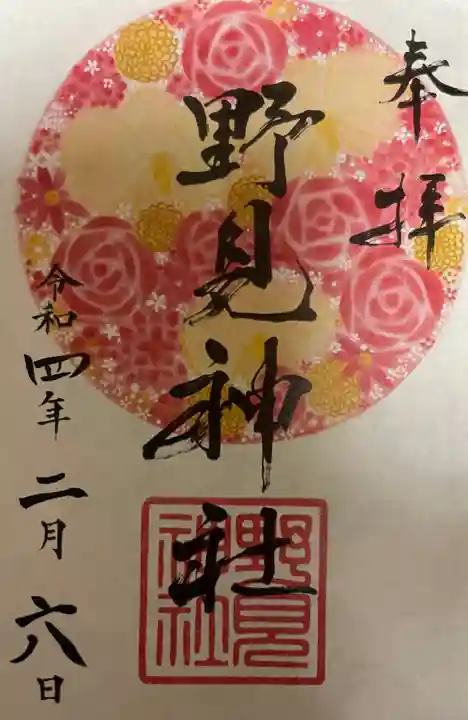 奉拝
野見神社
令和四年二月六日
野見
神社